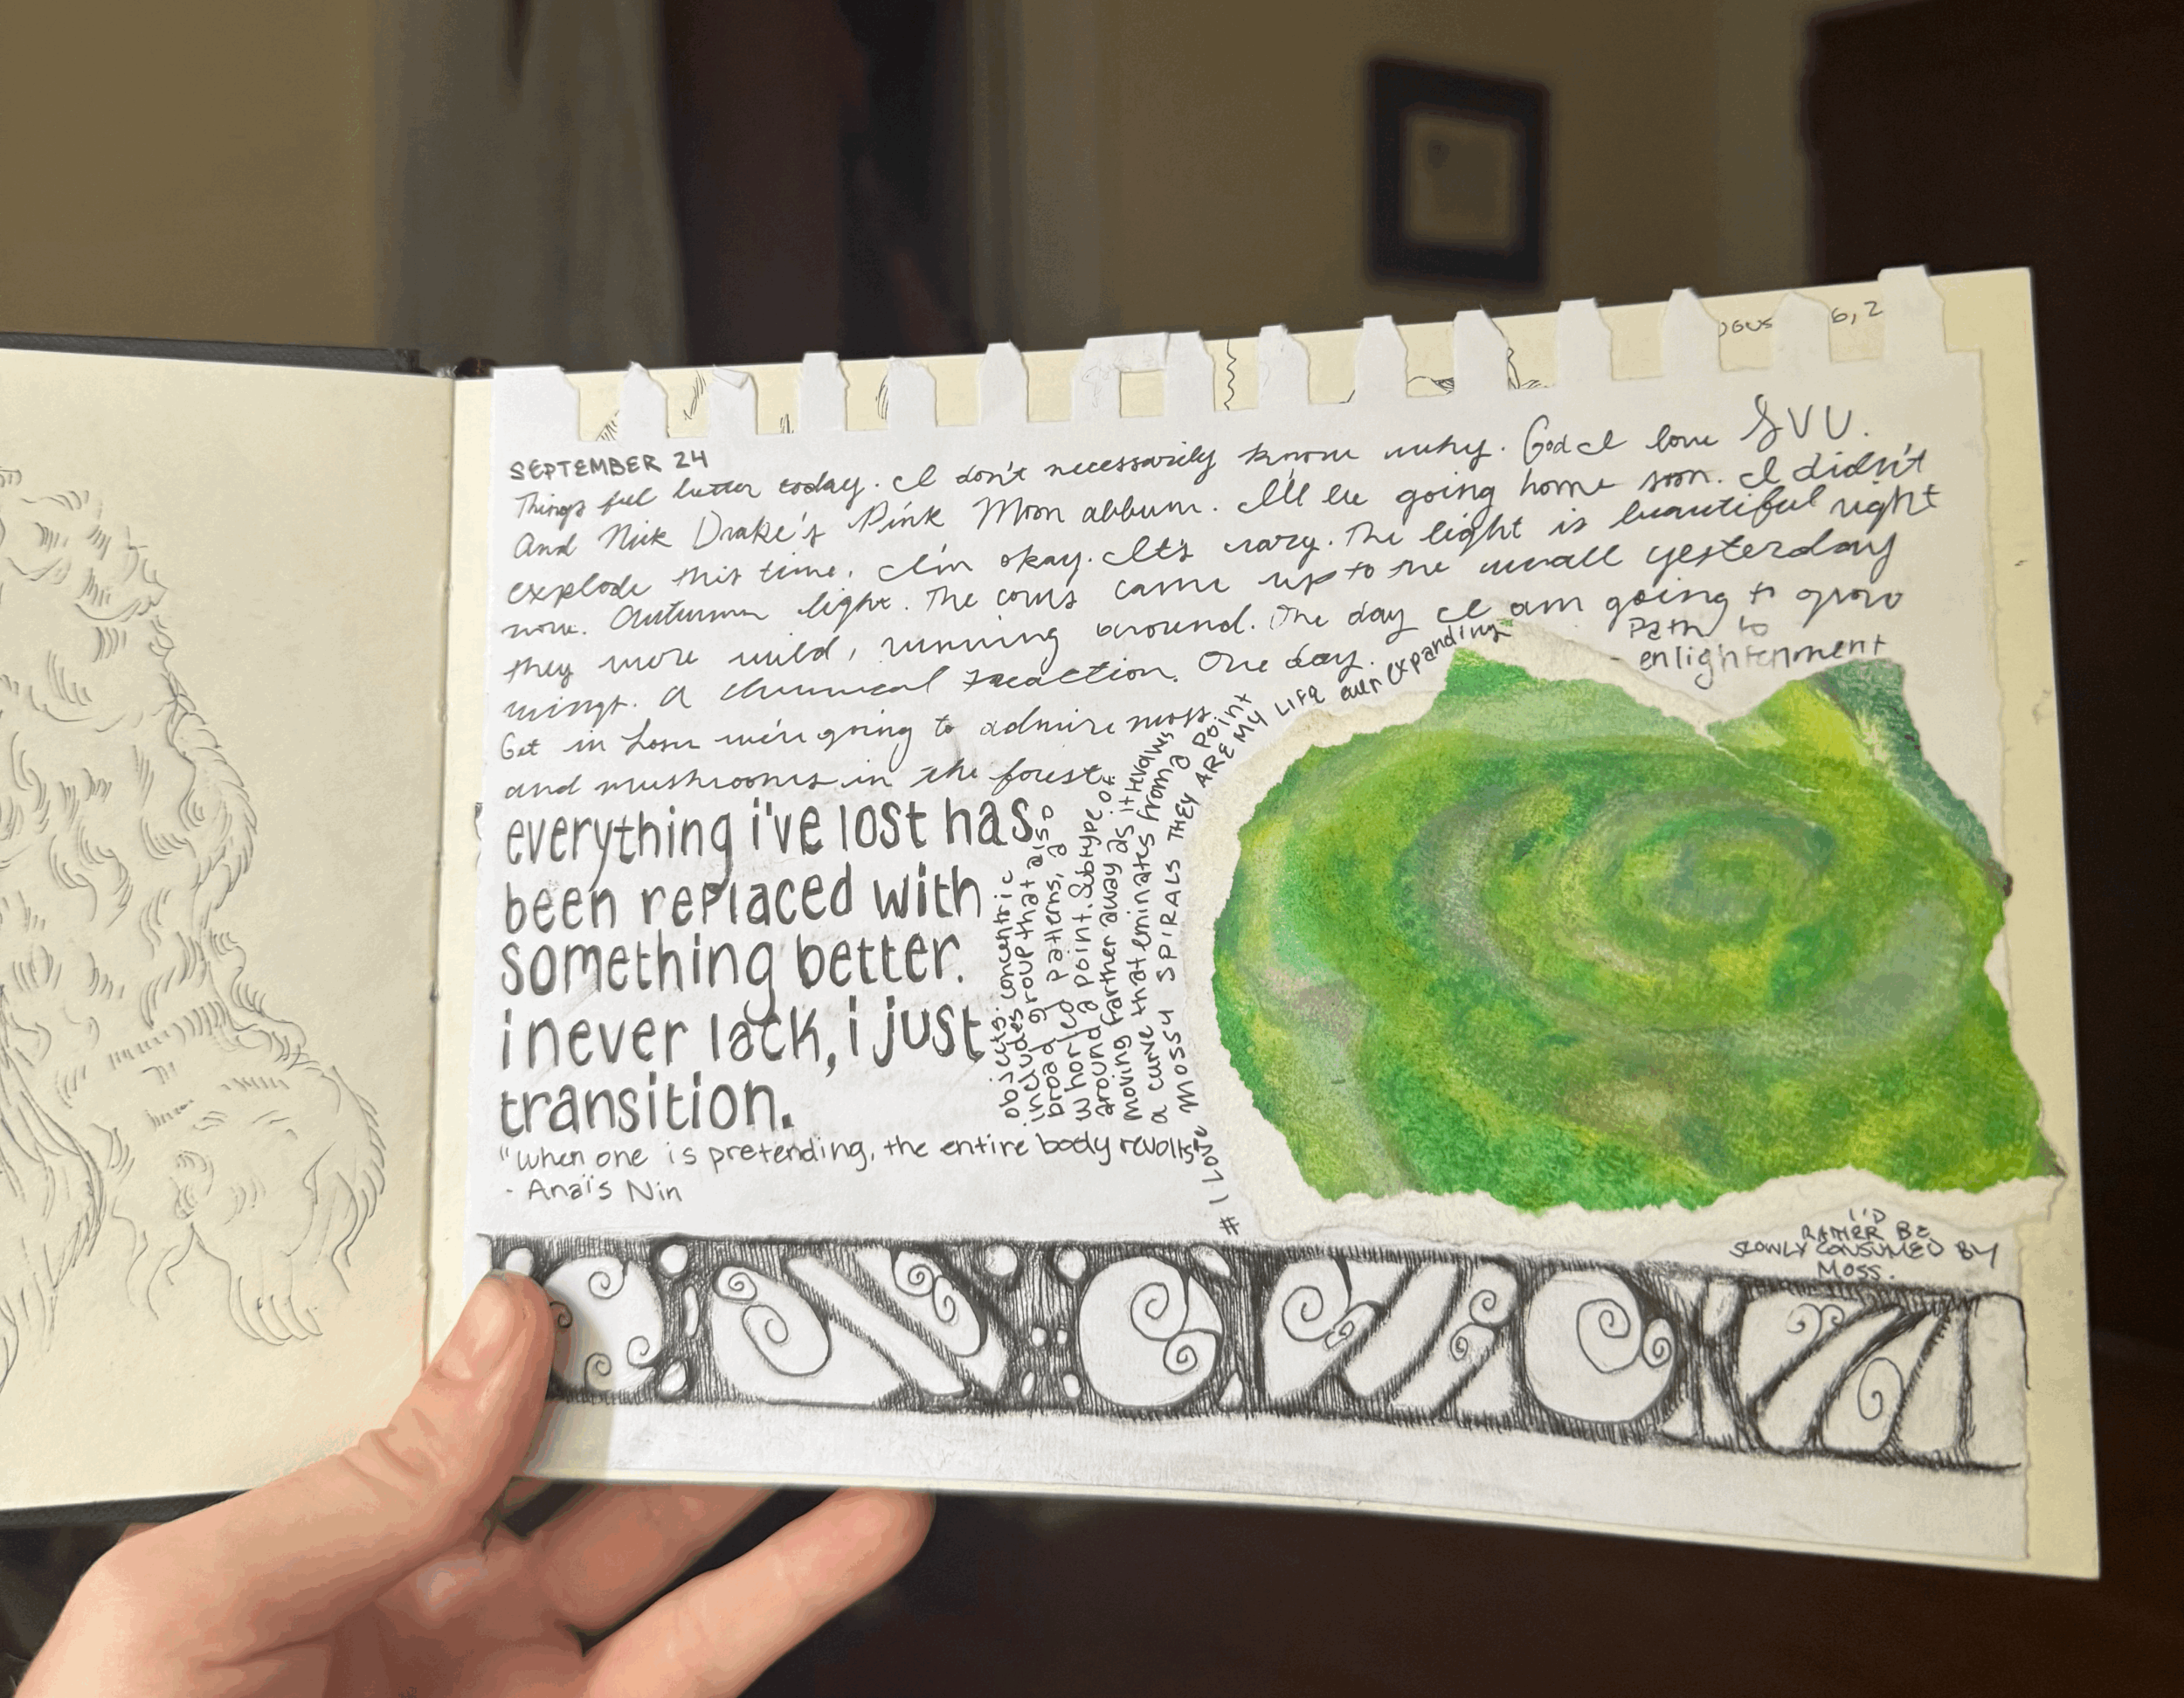 OGUS 6, 2
SEPTEMBER 24
Things feel better today. I don't necessarily know why. God I love SVU.
And Nick Drake's Pink Moon album. I'll be going home soon. I didn't
explode this time. I'm okay. It's crazy. The light is beautiful right
now. Autumn light. The cows came up to the wall yesterday
they were wild, running around. One day I am going to grow
wings. A chemical reaction. One day.
Get in loser we're going to admire moss
and mushrooms in the forest.
everything i've lost has
been replaced with
something better.
i never lack, i just
transition.
"When one is pretending, the entire body revolts"
- Anaïs Nin
objects. concentric
includes group that also
broad patterns, a
whorled point. Subtype of
around a
moving farther away as it revolves
a curve that eminates from a point
# I LOVE MOSSY SPIRALS THEY ARE MY LIFE ever expanding
Path to
enlightenment
I'D
RATHER BE
SLOWLY CONSUMED BY
MOSS.